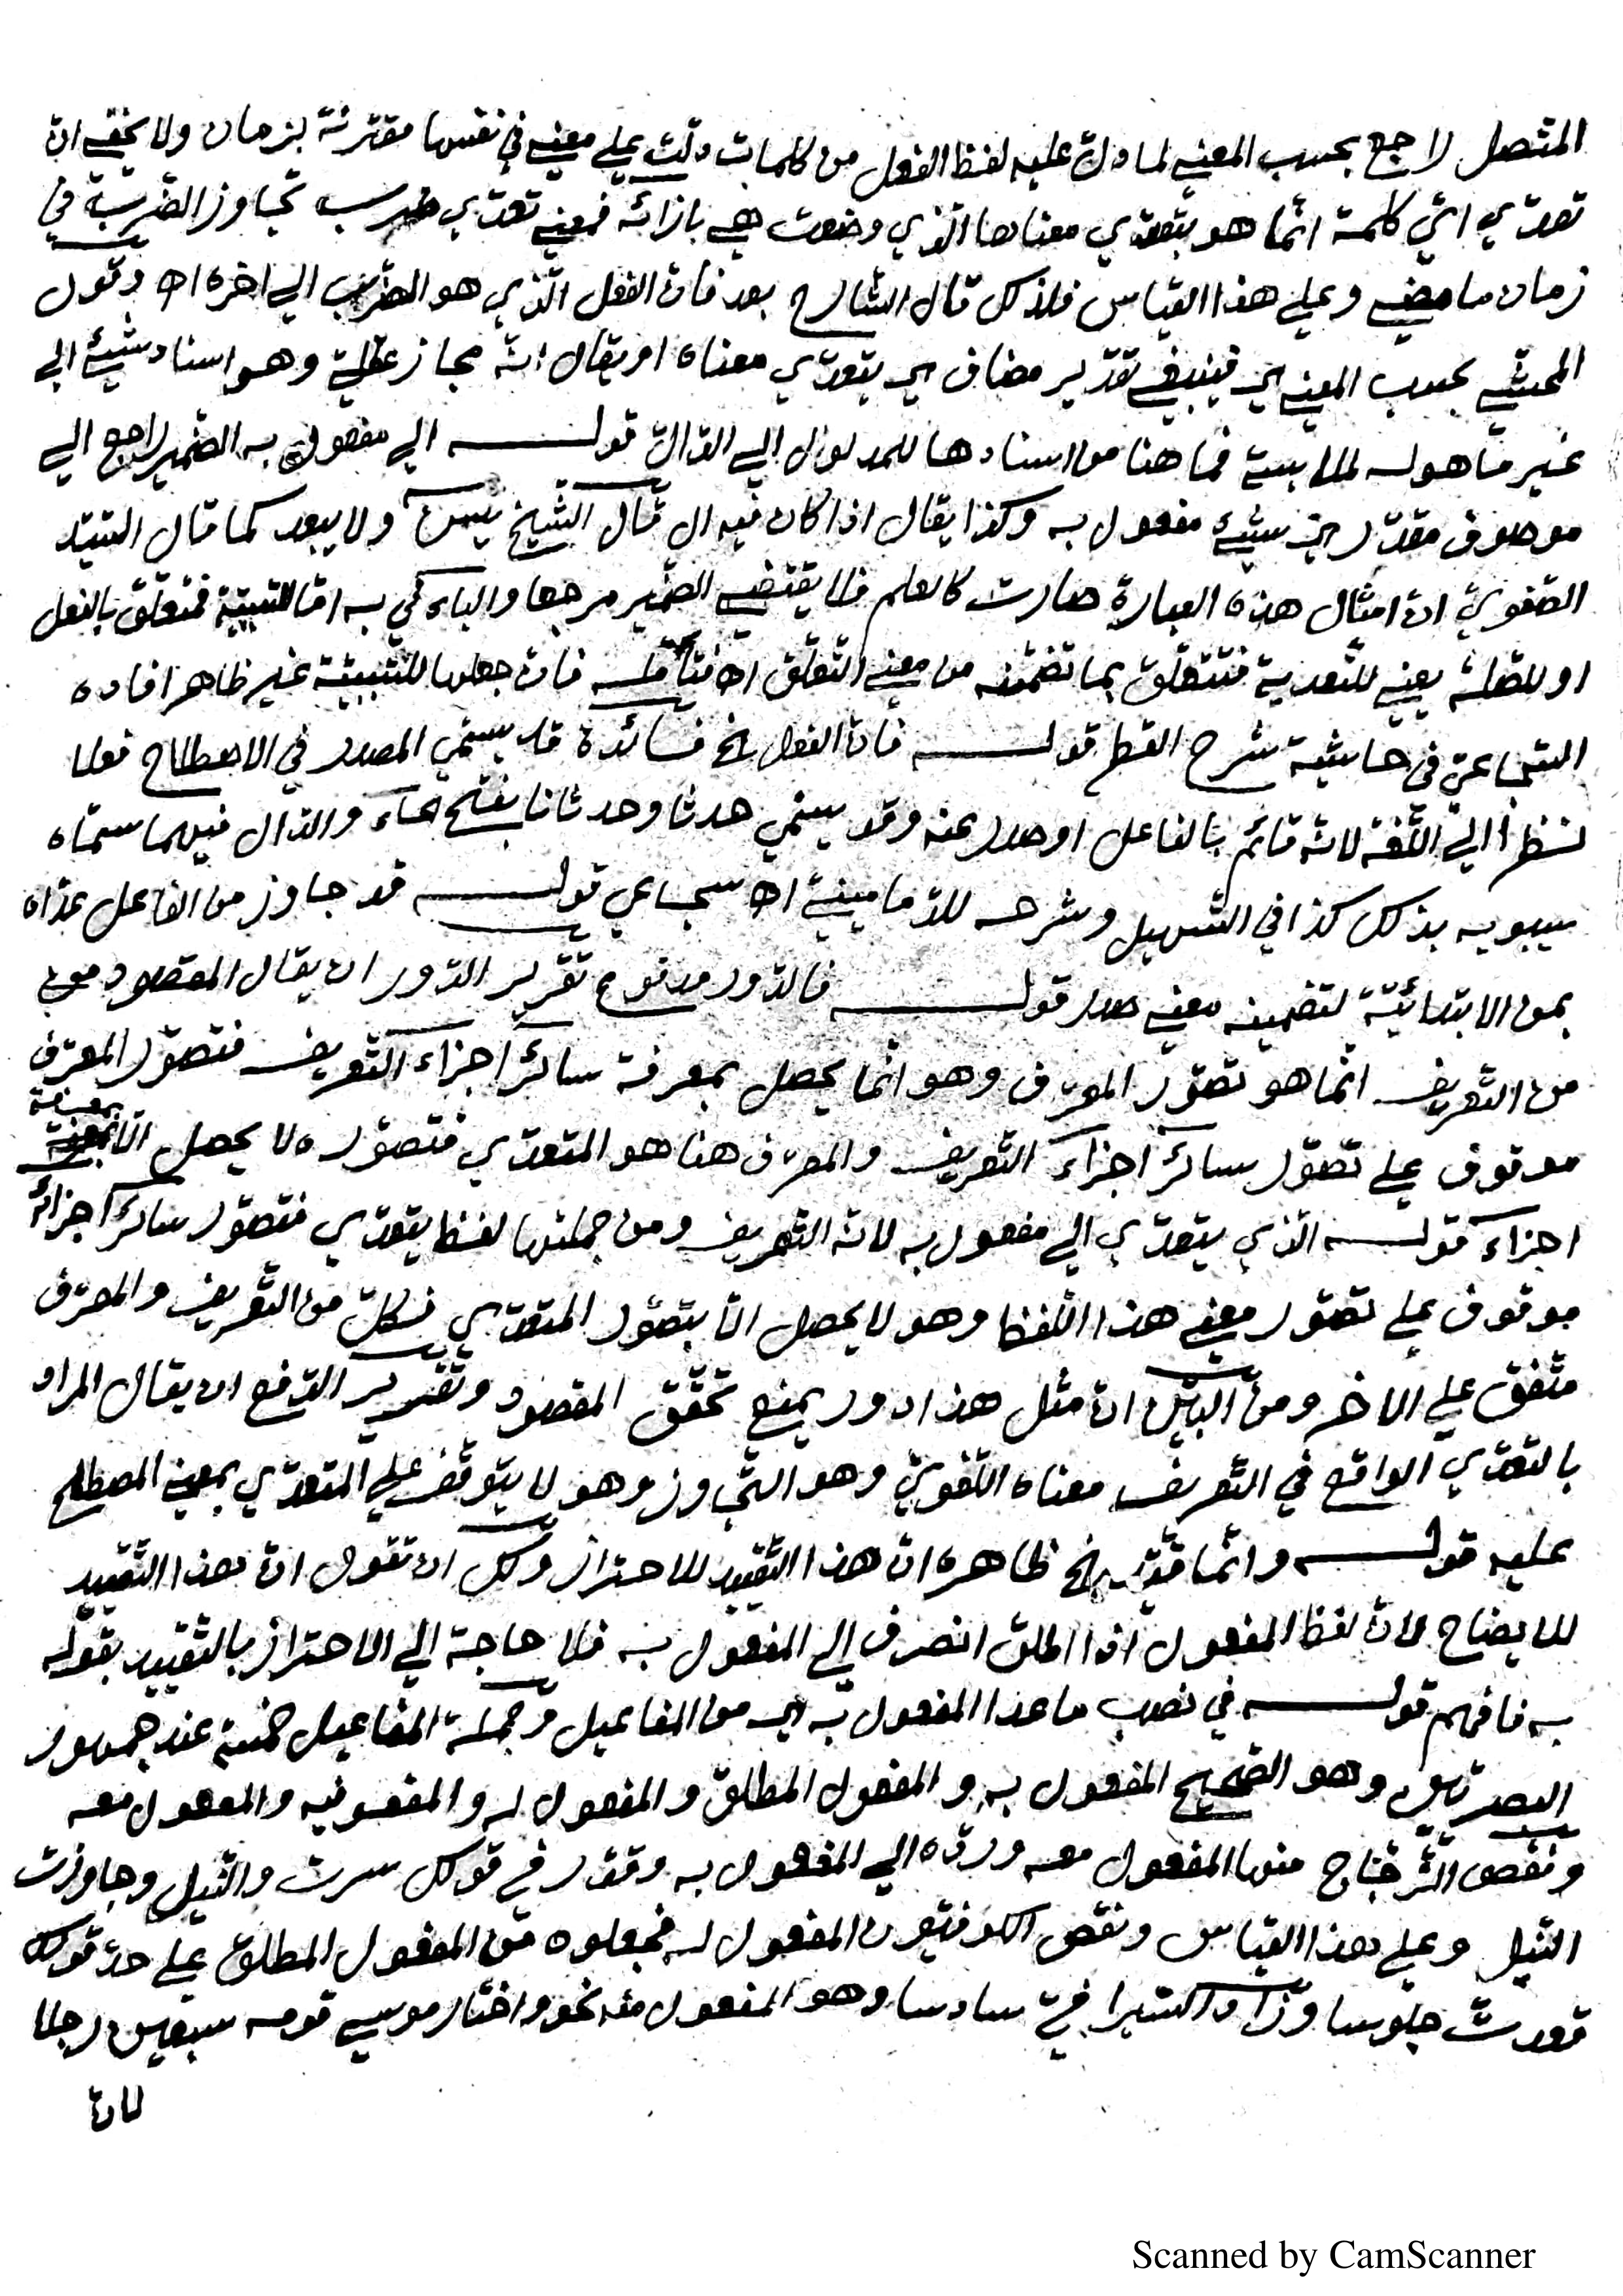 المتصل راجع بحسب المعنى لما دلّ عليه لفظ الفعل من كلمات دلّت على معنى في نفسها مقترنة بزمان ولا يخفى انّ
تعدّي ايّ كلمة انّما هو بتعدّي معناها الّذي وضعت هي بازائه فمعنى تعدّي ضرب تجاوز الضّرب في
زمان ما مضى وعلى هذا القياس فلذلك قال الشارح بعد فانّ الفعل الّذي هو الضّرب الى اخره اه وقول
المحشّي بحسب المعنى اي فينبغي تقدير مضاف اي يتعدّي معناه او يقال انّه مجاز عقليّ وهو اسناد شيئ الى
غير ما هو له لملابسة فما هنا من اسناد ها للمدلول الى الدّالّ قولـــه الى مفعول به الضّمير راجع الى
موصوف مقدّر اي شيئ مفعول به وكذا يقال اذا كان فيه ال قال الشّيخ يس ولا يبعد كما قال السّيّد
الصّفويّ انّ امثال هذه العبارة صارت كالعلم فلا يقتضى الضّمير مرجعا والباء في به امّا للسّببيّة فمتعلّق بالفعل
او للصّلة يعني للتّعدية فتتعلّق بما تضمّنه من معنى التّعلّق اه فتأمّله فانّ جعلها للسّببيّة غير ظاهر افاده
السّجاعيّ في حاشية شرح القطر قولـــه فانّ الفعل الخ فائدة قد يسمّي المصدر في الاصطلاح فعلا
نظرا الى اللّغة لانّه قائم بالفاعل او صدر عنه وقد يسمّي حدثا وحدثانا بفتح الحاء والدّال فيهما سمّاه
سيبويه بذلك كذا في التّسهيل وشرحه للدّمامينيّ اه سجاعي قولـــه قد جاوز من الفاعل عدّاه
بمن الابتدائيّة لتضمينه معنى صدر قولـــه فالدّور مدفوع تقرير الدّور ان يقال المقصود
من التّعريف انّما هو تصوّر المعرّف وهو انّما يحصل بمعرفة سائر اجزاء التّعريف فتصوّر المعرّف
موقوف على تصوّر سائر اجزاء التّعريف والمعرّف هنا هو المتعدّي فتصوّره لا يحصل الّا بمعرفة
اجزاء قولـــه الّذي يتعدّي الى مفعول به لانّه التّعريف ومن جملتها لفظ يتعدّي فتصوّر سائر اجزائه
موقوف على تصوّر معنى هذا اللّفظ وهو لا يحصل الّا بتصوّر المتعدّي فكلّ من التّعريف والمعرّف
متفق على الاخر ومن البيّن انّ مثل هذا دور يمنع تحقّق المقصود وتقرير الدّفع ان يقال المراد
بالتعدّي الواقع في التّعريف معناه اللّغويّ وهو التّجاوز وهو لا يتوقّف على المتعدّي بمعنى المصطلح
عليه قولـــه وانّما قيّد الخ ظاهره انّ هذا التّقييد للاحتراز ولك ان تقول انّ هذا التّقييد
للايضاح لانّ لفظ المفعول اذا اطلق انصرف الى المفعول به فلا حاجة الى الاحتراز بالتّقييد بقوله
به فافهم قولـــه في نصب ما عدا المفعول به اي من المفاعيل وجملة المفاعيل خمسة عند جمهور
البصريّين وهو الصّحيح المفعول به والمفعول المطلق والمفعول له والمفعو فيه والمفعول معه
ونقص الزّجّاج منها المفعول معه وردّه الى المفعول به وقدّر في قولك سرت والنّيل وجاوزت
النّيل وعلى هذا القياس ونقص الكوفيّون المفعول له فجعلوه من المفعول المطلق على حدّ قولك
قعدت جلوسا وزاد السّيرافيّ سادسا وهو المفعول منه نحو واختار موسى قومه سبعين رجلا
لانّ
Scanned by CamScanner